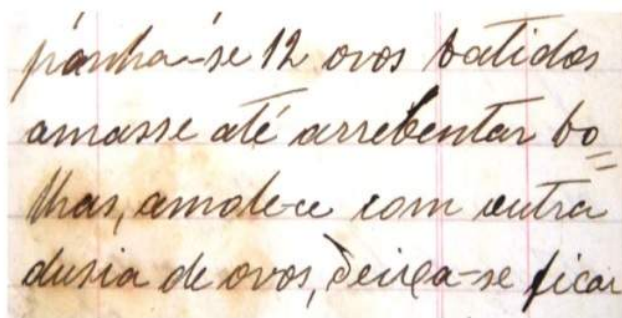 pônha-se 12 ovos batidos
amasse até arrebentar bo=
lhas, amolece com outra
dusia de ovos, deixa-se ficar